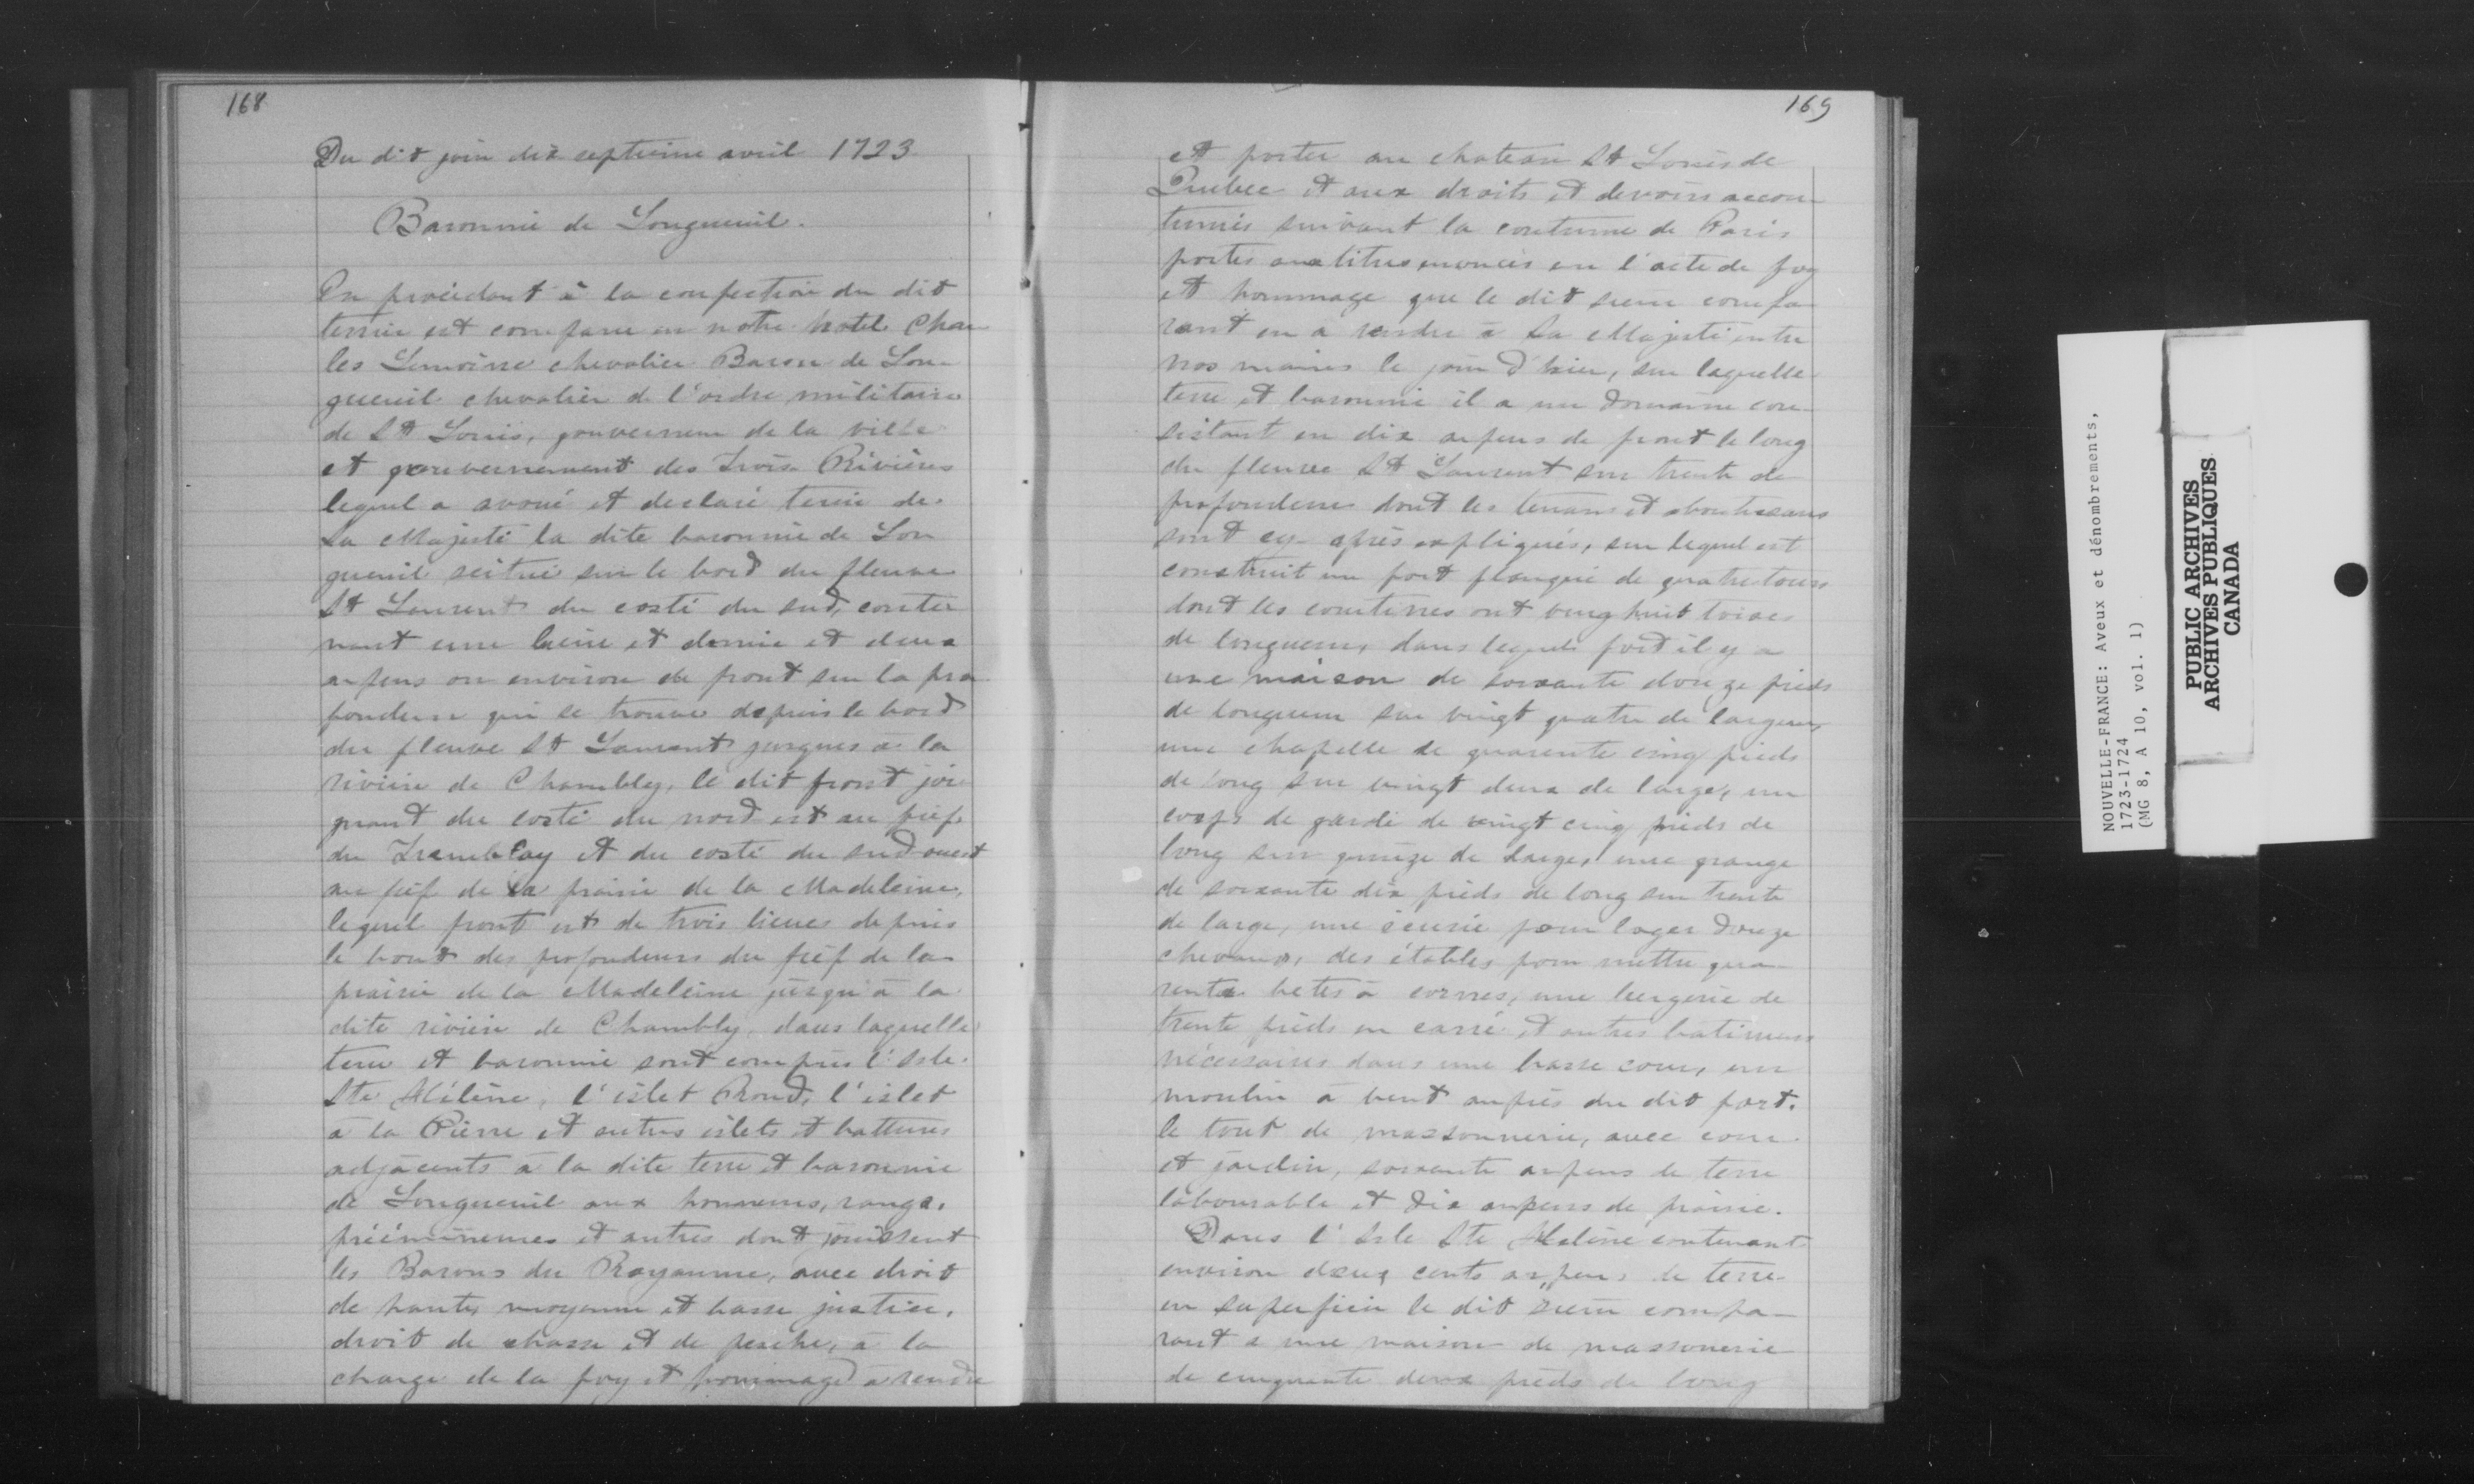 168
Du dit jour dix septieme avril 1723
Baronnie de Longueuil.
En procédant à la confection du dit
terrier est comparu en notre hotel Char
les Lemoine chevalier Baron de Lon-
gueuil chevalier de l'ordre militaire
de St Louis, gouverneur de la ville
et gouvernement des Trois Rivières
lequel a avoué et declaré tenir de
Sa Majesté la dite baronnie de Lon
gueuil scitué sur le bord du fleuve
St Laurent du costé du sud, conte
nant une lieue et demie et deux
arpens ou environ de front sur la pro
fondeur qui se trouve depuis le bord
du fleuve St Laurent jusques à la
rivière de Chambly, le dit front joi
gnant du costé du nord est au fief
du Tremblay et du costé du sud ouest
au fief de la prairie de la Madeleine,
lequel front est de trois lieues depuis
le bout des profondeurs du fief de la
prairie de la Madeleine jusqu'à la
dite rivière de Chambly, dans laquelle
terre et baronnie sont compris l'Isle
Ste Hélène, l'islet Rond, l'islet
à la Pierre et autres islets et battures
adjacents à la dite terre et baronnie
de Longueuil aux honneurs, rangs,
prééminences et autres dont jouissent
les Barons du Royaume, avec droit
de haute, moyenne et basse justice,
droit de chasse et de pesche, à la
charge de la foy et hommage à rendre
169
et porter au chateau St Louis de
Quebec et aux droits et devoirs accou-
tumés suivant la coutume de Paris
portés aux titres enoncés en l'acte de foy
et hommage que le dit sieur compa
rant en a rendu à Sa Majesté entre
nos mains le jour d'hier, sur laquelle
terre et baronnie il a un domaine con-
sistant en dix arpens de front le long
du fleuve St Laurent sur trente de
profondeur dont les tenans et aboutissans
sont cy-après expliqués, sur lequel est
construit un fort flanqué de quatre tours
dont les courtines ont vingt huit toises
de longueur, dans lequel fort il y a
une maison de soixante douze pieds
de longueur sur vingt quatre de largeur,
une chapelle de quarante cinq pieds
de long sur vingt deux de large, un
corps de garde de vingt cinq pieds de
long sur quinze de large, une grange
de soixante dix pieds de long sur trente
de large, une écurie pour loger douze
chevaux, des étables pour mettre qua-
rante betes à cornes, une bergerie de
trente pieds en carré et autres batimens
nécessaires dans une basse cour, un
moulin à vent auprès du dit fort.
le tout de massonnerie, avec cour
et jardin, soixante arpens de terre
labourable et dix arpens de prairie.
Dans l'Isle Ste Helène contenant
environ deux cents arpens de terre
en superficie le dit sieur compa-
rant a une maison de massonerie
de cinquante deux pieds de long
NOUVELLE-FRANCE: Aveux et dénombrements,
1723-1724
(MG 8, A 10, vol. 1)
PUBLIC ARCHIVES
ARCHIVES PUBLIQUES
CANADA